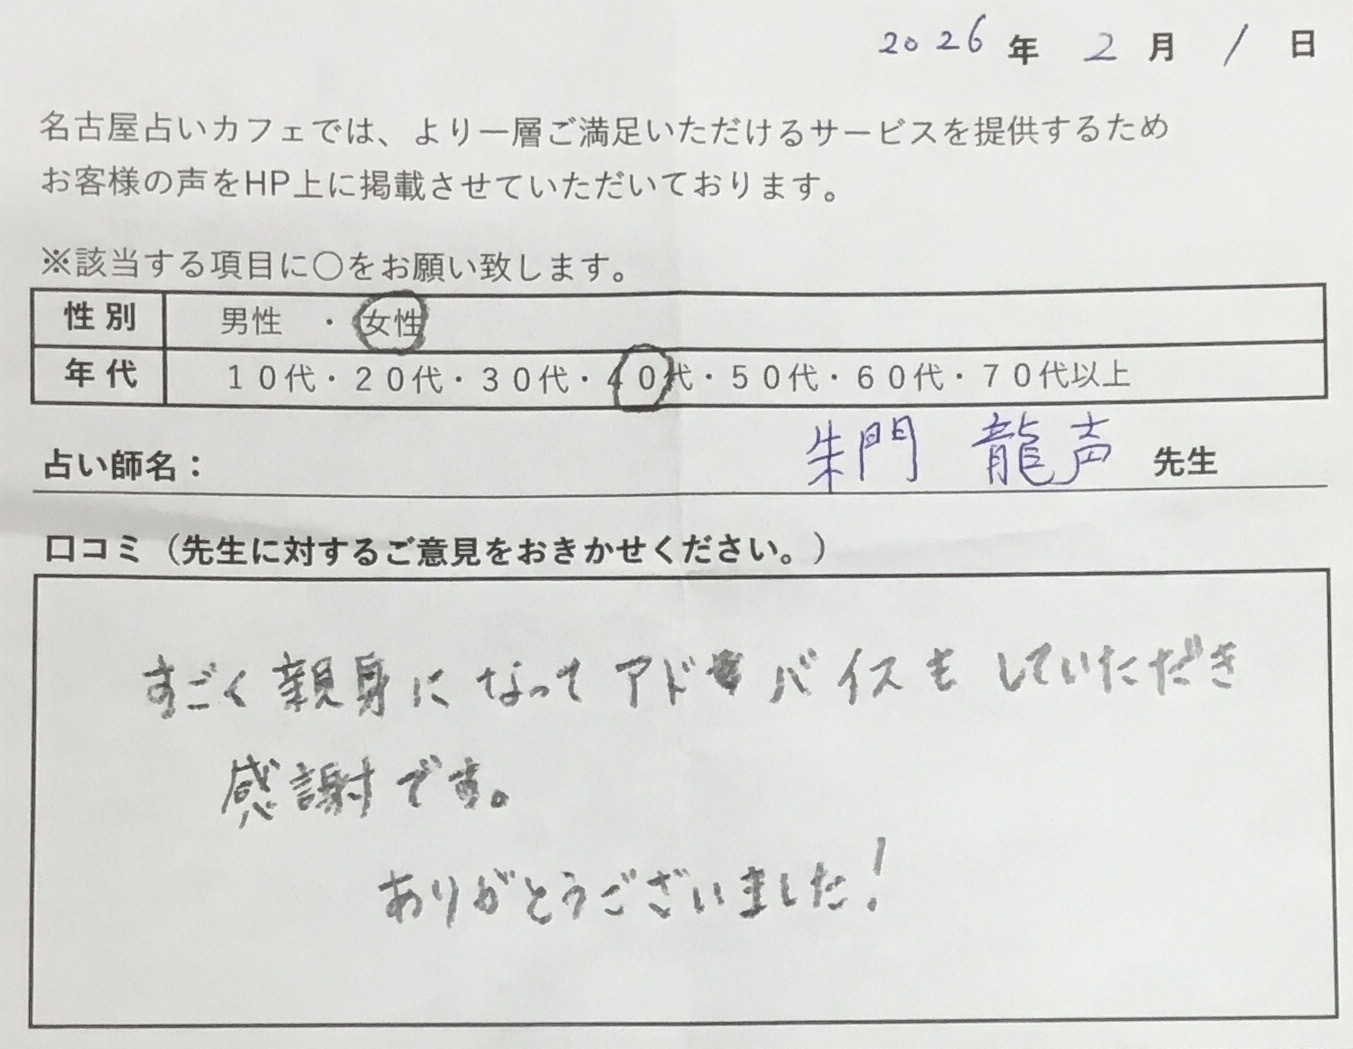 2026 年 2 月 1 日
名古屋占いカフェでは、より一層ご満足いただけるサービスを提供するため
お客様の声をHP上に掲載させていただいております。
※該当する項目に〇をお願い致します。
性別 男性 ・ 女性
年代 10代・20代・30代・40代・50代・60代・70代以上
占い師名： 朱門 龍声 先生
口コミ（先生に対するご意見をおきかせください。）
すごく親身になってアドバイスもしていただき
感謝です。
ありがとうございました！